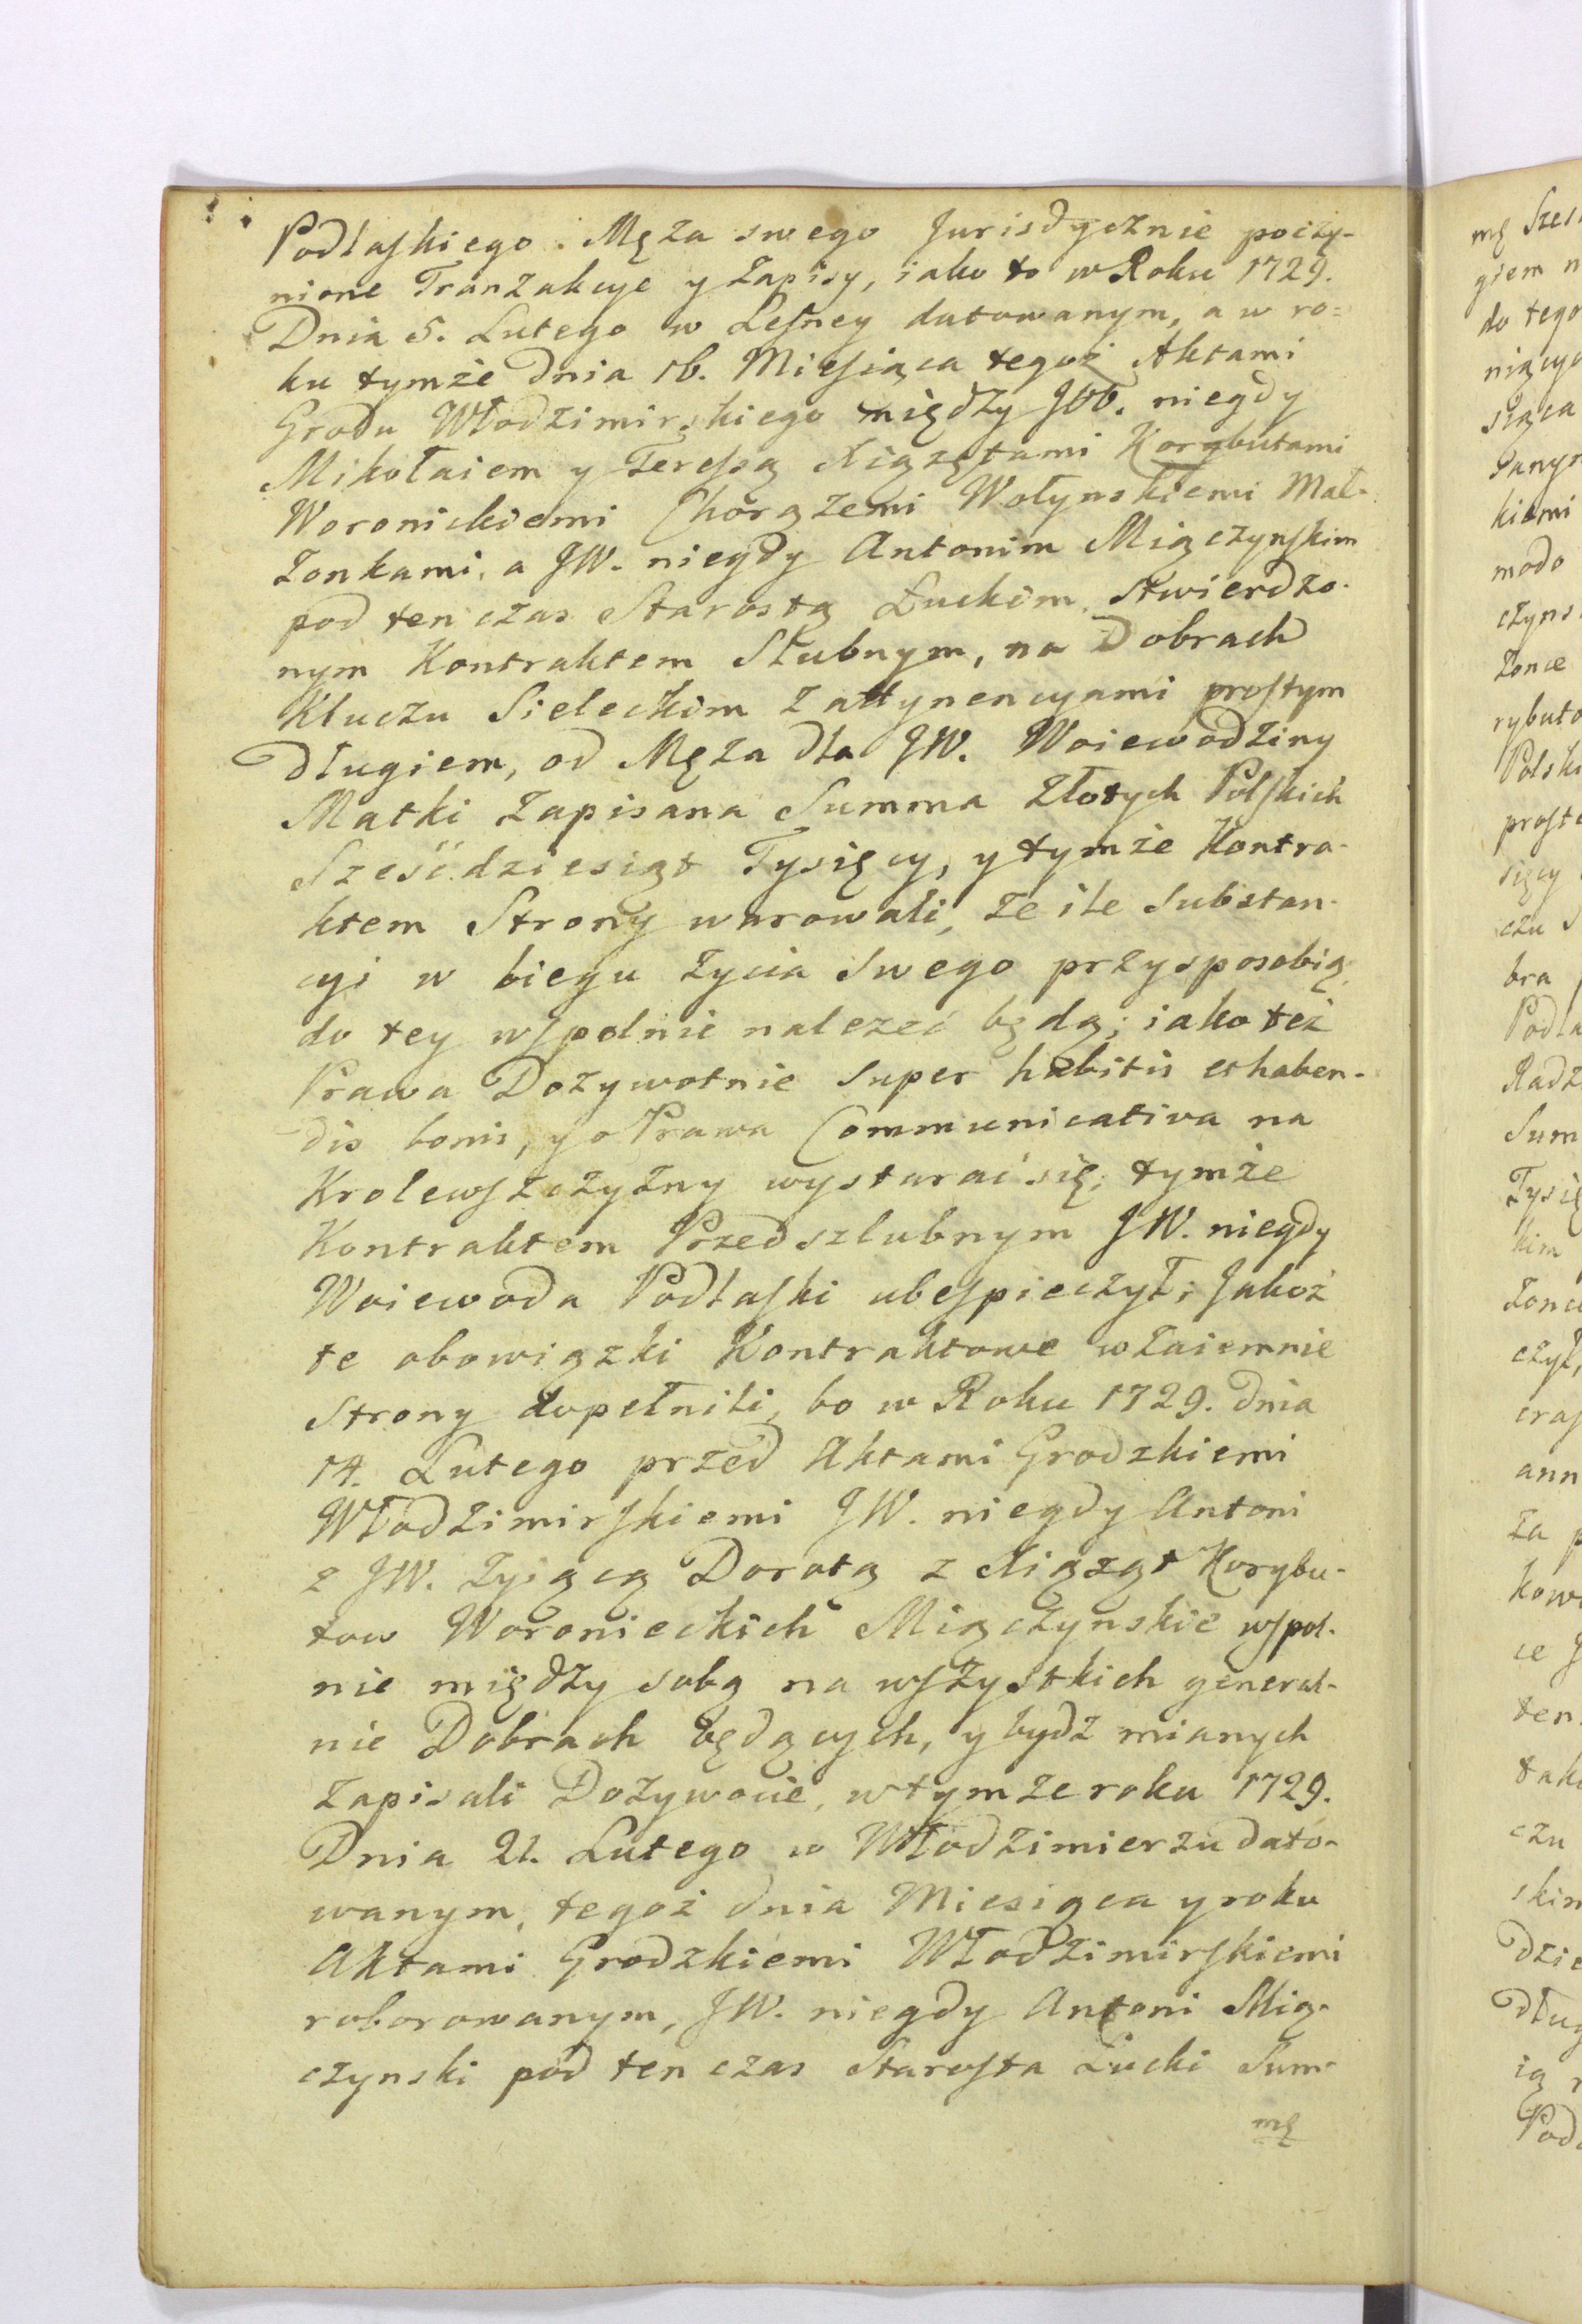 Podlaskiego Męża swego Jurisdycznie poczy-
nione Tranzakcye y Zapisy, iako to w Roku 1729.
Dnia 5. Lutego w Lesney datowanym, a w ro-
ku tymże dnia 16. Miesiąca tegoż Aktami
Grodu Włodzimirskiego między JWW. niegdy
Mikołaiem y Teressą Xiązętami Korybutami
Woronickiemi Chorążemi Wołynskiemi Mał-
żonkami, a JW. niegdy Antonim Miączynskim
pod ten czas Starostą Łuckim stwierdzo-
nym Kontraktem Slubnym, na Dobrach
Kluczu Sieleckim z attynencyami prostym
długiem, od Męża dla JW. Woiewodziny
Matki zapisana Summa Złotych Polskich
Sześćdziesiąt Tysięcy, y tymże Kontra-
ktem Strony warowali, że ile Substan-
cyi w biegu życia Swego przysposobią,
do tey wspolnie należeć będą; iako też
Prawa Dożywotnie super habitis et haben-
dis bonis, y o Prawa Communicativa na
Krolewszczyzny wystarać się; tymże
Kontraktem Przedszlubnym JW. niegdy
Woiewoda Podlaski ubespieczył; Jakoż
te obowiązki Kontraktowe wzaiemnie
Strony dopełnili, bo w Roku 1729. dnia
14. Lutego przed Aktami Grodzkiemi
Włodzimirskiemi JW. niegdy Antoni
z JW. żyiącą Dorotą z Xiążąt Korybu-
tow Woronieckich Miączynskie wspol-
nie między sobą na wszystkich general-
nie Dobrach będących, y bydź mianych
zapisali Dożywocie, w tymże roku 1729.
Dnia 21. Lutego w Włodzimierzu dato-
wanym, tegoż dnia Miesiąca y roku
Aktami Grodzkiemi Włodzimirskiemi
roborowanym, JW. niegdy Antoni Mią-
czynski pod ten czas Starosta Łucki Sum-
mę
mę
giem
do tego
niącya
siąca
kiemi
modo
czyns
żonce
rybuto
Polski
prosto
sięcy
czu
bra
Podla
Radz
Sum
Tysię
kim
żonce
czył,
cras
ann
za
kow
ce
ten
tak
czu
skim
dzie
dług
ią
Pod